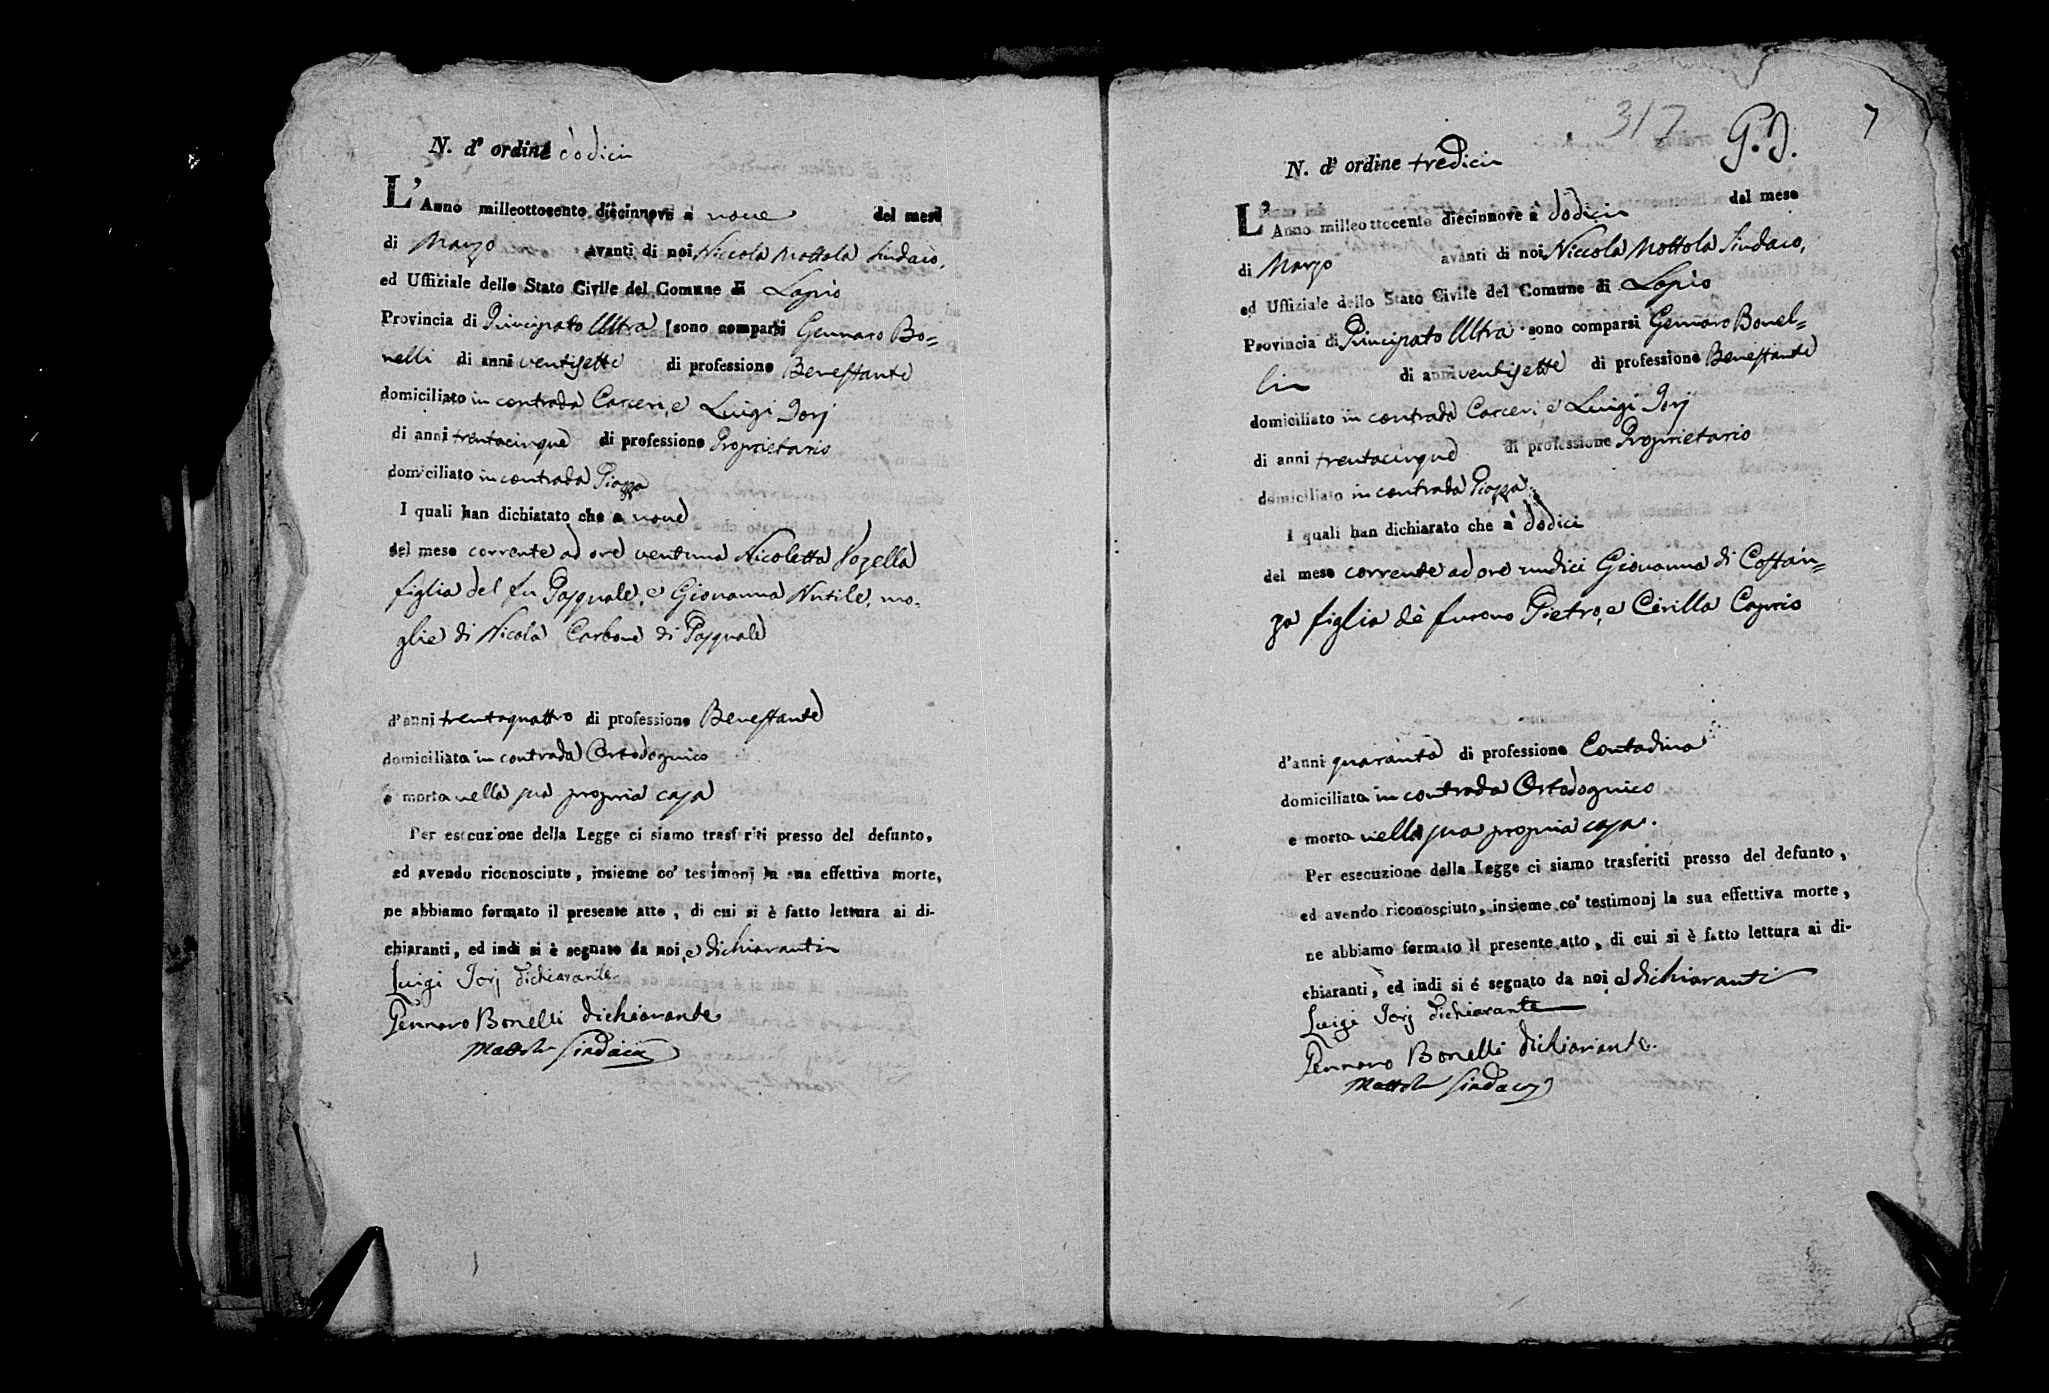 N. d'ordine dodici
L'Anno milleottocento diecinnove à nove del mese
di Marzo avanti di noi Niccola Mottola Sindaco,
ed Uffiziale dello Stato Civile del Comune di Lapio
Provincia di Principato Ultra sono comparsi Gennaro Bo=
nelli di anni ventisette di professione Benestante
domiciliato in contrada Carceri, e Luigi Iorj
di anni trentacinque di professione Proprietario
domiciliato in contrada Piazza
I quali han dichiatato che a nove
del mese corrente ad ore ventuna Nicoletta
figlia del fu Pasquale, e Giovanna Nutile, mo=
glie di Nicola Carbone di Pasquale
d'anni trentaquattro di professione Benestante
domiciliata in contrada Ortodognico
è morta nella sua propria casa
Per esecuzione della Legge ci siamo trasferiti presso del defunto,
ed avendo riconosciuto, insieme co' testimonj la sua effettiva morte,
ne abbiamo formato il presente atto, di cui si è fatto lettura ai di-
chiaranti, ed indi si è segnato da noi, e dichiaranti
Luigi Iorj dichiarante
Gennaro Bonelli dichiarante
Mottola Sindaco
317 G. I. 7
N. d'ordine tredici
L'Anno milleottocento diecinnove à dodici del mese
di Marzo avanti di noi Niccola Mottola Sindaco,
ed Uffiziale dello Stato Civile del Comune di Lapio
Provincia di Principato Ultra sono comparsi Gennaro Bonel=
li di anni ventisette di professione Benestante
domiciliato in contrada Carceri, e Luigi Iorj
di anni trentacinque di professione Proprietario
domiciliato in contrada Piazza
I quali han dichiarato che a' dodici
del mese corrente ad ore undici Giovanna di Costan=
zo figlia de' furono Pietro, e Cirilla Caprio
d'anni quaranta di professione Contadina
domiciliata in contrada Ortodognico
e morta nella sua propria casa.
Per esecuzione della Legge ci siamo trasferiti presso del defunto,
ed avendo riconosciuto, insieme co' testimonj la sua effettiva morte,
ne abbiamo formato il presente atto, di cui si è fatto lettura ai di-
chiaranti, ed indi si é segnato da noi, e dichiaranti
Luigi Iorj dichiarante
Gennaro Bonelli dichiarante.
Mottola Sindaco